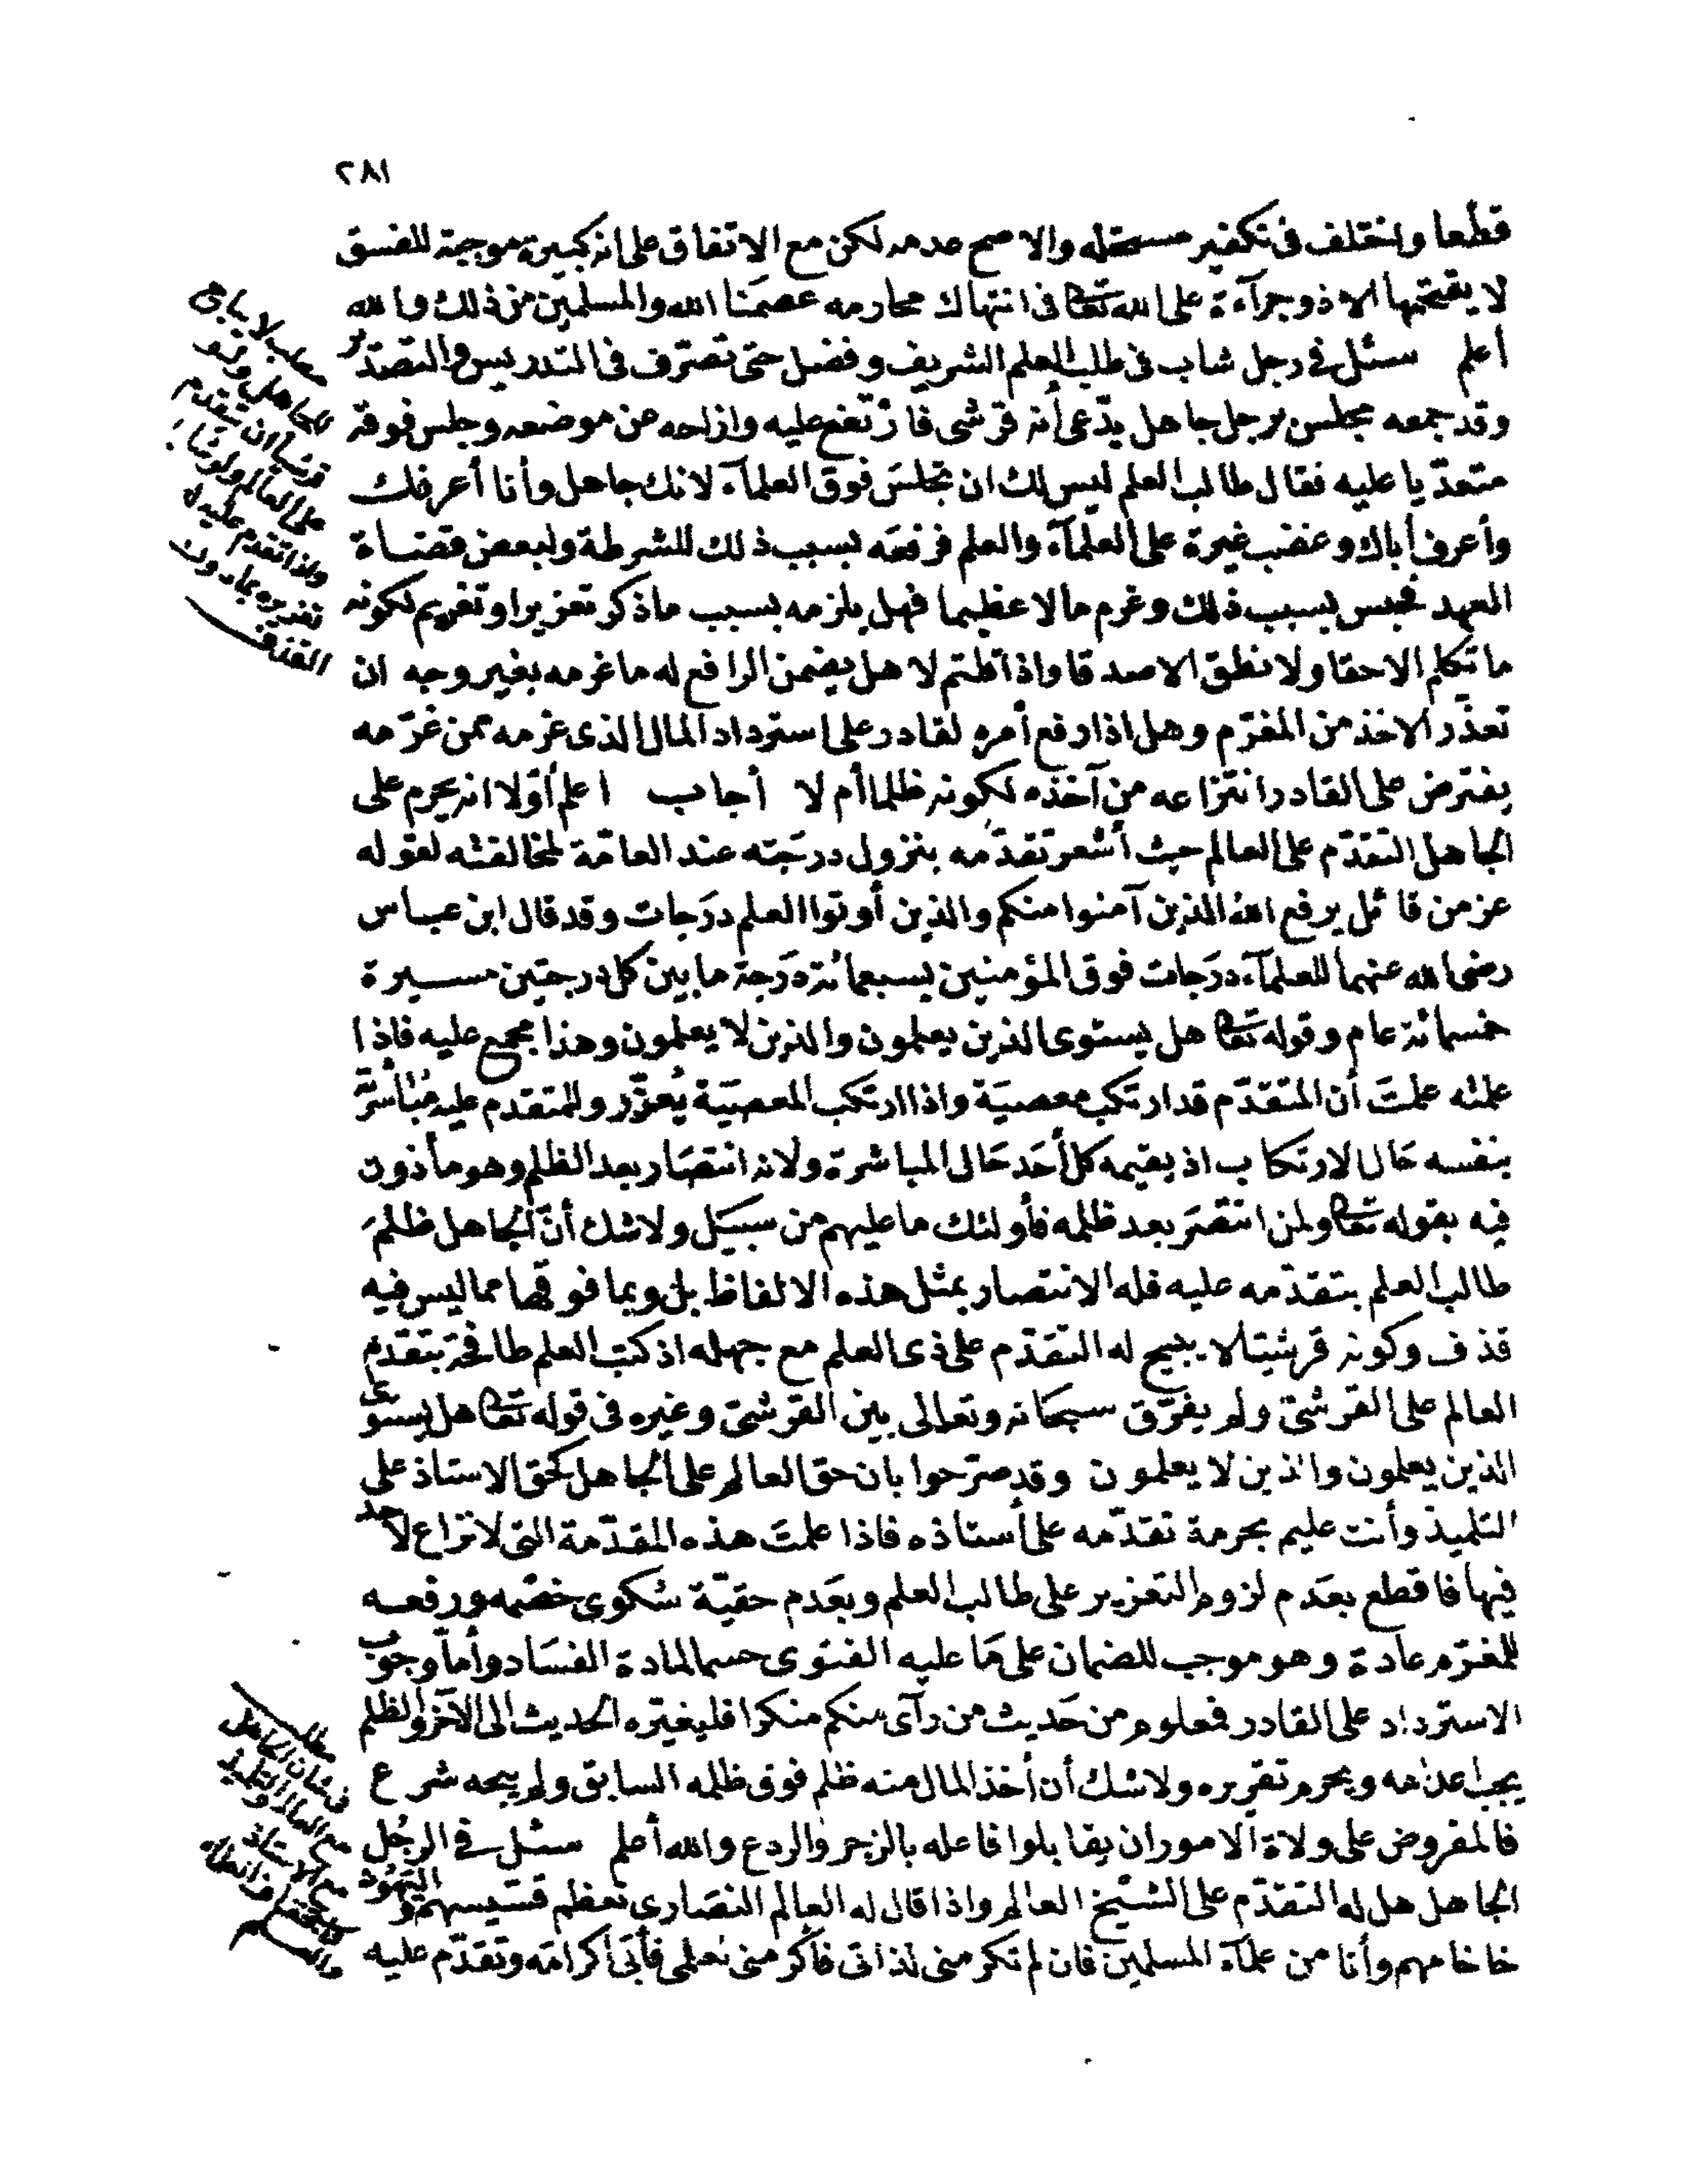 ٢٨١
قطعا واختلف فى تكفير مستحله والاصح عدمه لكن مع الاتفاق على انه كبيرة موجبة للفسق
لا يقتحمها الا ذو جرآءة على الله تعا فى انتهاك محارمه عصمنا الله والمسلمين من ذلك والله
أعلم سئل فى رجل شاب فى طلب العلم الشريف وفضل حتى تصرّف فى التدريس والتصدّر
وقد جمعه مجلس برجل جاهل يدّعى أنه قرشى فارتفع عليه وازاحه عن موضعه وجلس فوقه
متعدّيا عليه فقال طالب العلم ليس لك ان تجلسَ فوق العلمآء لانك جاهل وأنا أعرفك
وأعرف أباك وغضب غيرة على العلمآء والعلم فرفعه بسبب ذلك للشرطة ولبعض قضاة
العهد فحبس بسبب ذلك وغرم مالا عظيما فهل يلزمه بسبب ماذكر تعزير او تغريم لكونه
ما تكلم الاحقا ولا نطق الاصدقا واذا قلتم لا هل يضمن الرافع له ما غرمه بغير وجه ان
تعذّر الاخذ من المغرّم وهل اذا رفع أمره لقادر على استرداد المال الذى غرمه ممن غرّمه
يفترض على القادر انتزاعه من آخذه لكونه ظلما أم لا أجاب اعلم أوّلا انه يحرم على
الجاهل التقدّم على العالم حيث أشعر تقدّمه بنزول درجته عند العامّة لمخالفته لقوله
عز من قائل يرفع الله الذين آمنوا منكم والذين أوتوا العلم درَجات وقد قال ابن عباس
رضى الله عنهما للعلمآء درَجات فوق المؤمنين بسبعمائة درَجة ما بين كل درجتين مسيرة
خمسمائة عام وقوله تعا هل يستوى الذين يعلمون والذين لا يعلمون وهذا مجمع عليه فاذا
علمته علمتَ أن المتقدّم قد ارتكب معصيَة واذا ارتكب المعصيَة يُعزّر وللمتقدم عليه مُباشرَة
بنفسه حَال الارتكاب اذ يقيمه كل أحَد حَال المباشرة ولانه انتصَار بعد الظلم وهو مأذون
فيه بقوله تعا ولمن انتصَر بعد ظلمه فأولئك ما عليهم من سبيَل ولا شك أنّ الجاهل ظلمَ
طالب العلم بتقدّمه عليه فله الانتصار بمثل هذه الالفاظ بل وبما فوقها مما ليس فيه
قذف وكونه قرشيّا لا يبيح له التقدّم على ذى العلم مع جهله اذ كتب العلم طافحة بتقدم
العالم على القرشىّ ولم يفرّق سبحانه وتعالى بين القرشىّ وغيره فى قوله تعا هل يستوى
الذين يعلمون والذين لا يعلمون وقد صرّحوا بان حق العالم على الجاهل كحق الاستاذ على
التلميذ وأنت عليم بحرمة تقدّمه على أستاذه فاذا علمتَ هذه المقدّمة التى لا نزاع لاحد
فيها فاقطع بعَدم لزوم التعزير على طالب العلم وبعَدم حقيّة شكوى خصْمه ورفعه
للمغرّم عادة وهو موجب للضمان على مَا عليه الفتوى حسما لمادة الفسَاد وأما وجوب
الاسترداد على القادر فمعلوم من حَديث من رآى منكم منكرا فليغيّره الحديث الى الآخر والظلم
يجب اعدامه ويحرم تقريره ولا شك أن أخذ المال منه ظلم فوق ظلمه السابق ولم يبحه شرع
فالمفروض على ولاة الامور ان يقابلوا فاعله بالزجر والردع والله أعلم سئل فى الرجُل
الجاهل هل له التقدّم على الشيخ العالم واذا قال له العالم النصَارى تعظم قسّيسهم واليَهُود
خاخامهم وأنا من علمآء المسلمين فان لم تكرمنى لذاتى فأكرمنى لعلمى فأبى اكرامَه وتقدّم عليه
مطلب لا يباح
للجاهل ولو
قرشيا ان يتقدم
على العالم ولو شابا
واذا تقدم عليه له
تعزيره بما دون
القذف
مطلب
فى شان الجاهل
مع العالم والتلميذ
مع الاستاذ